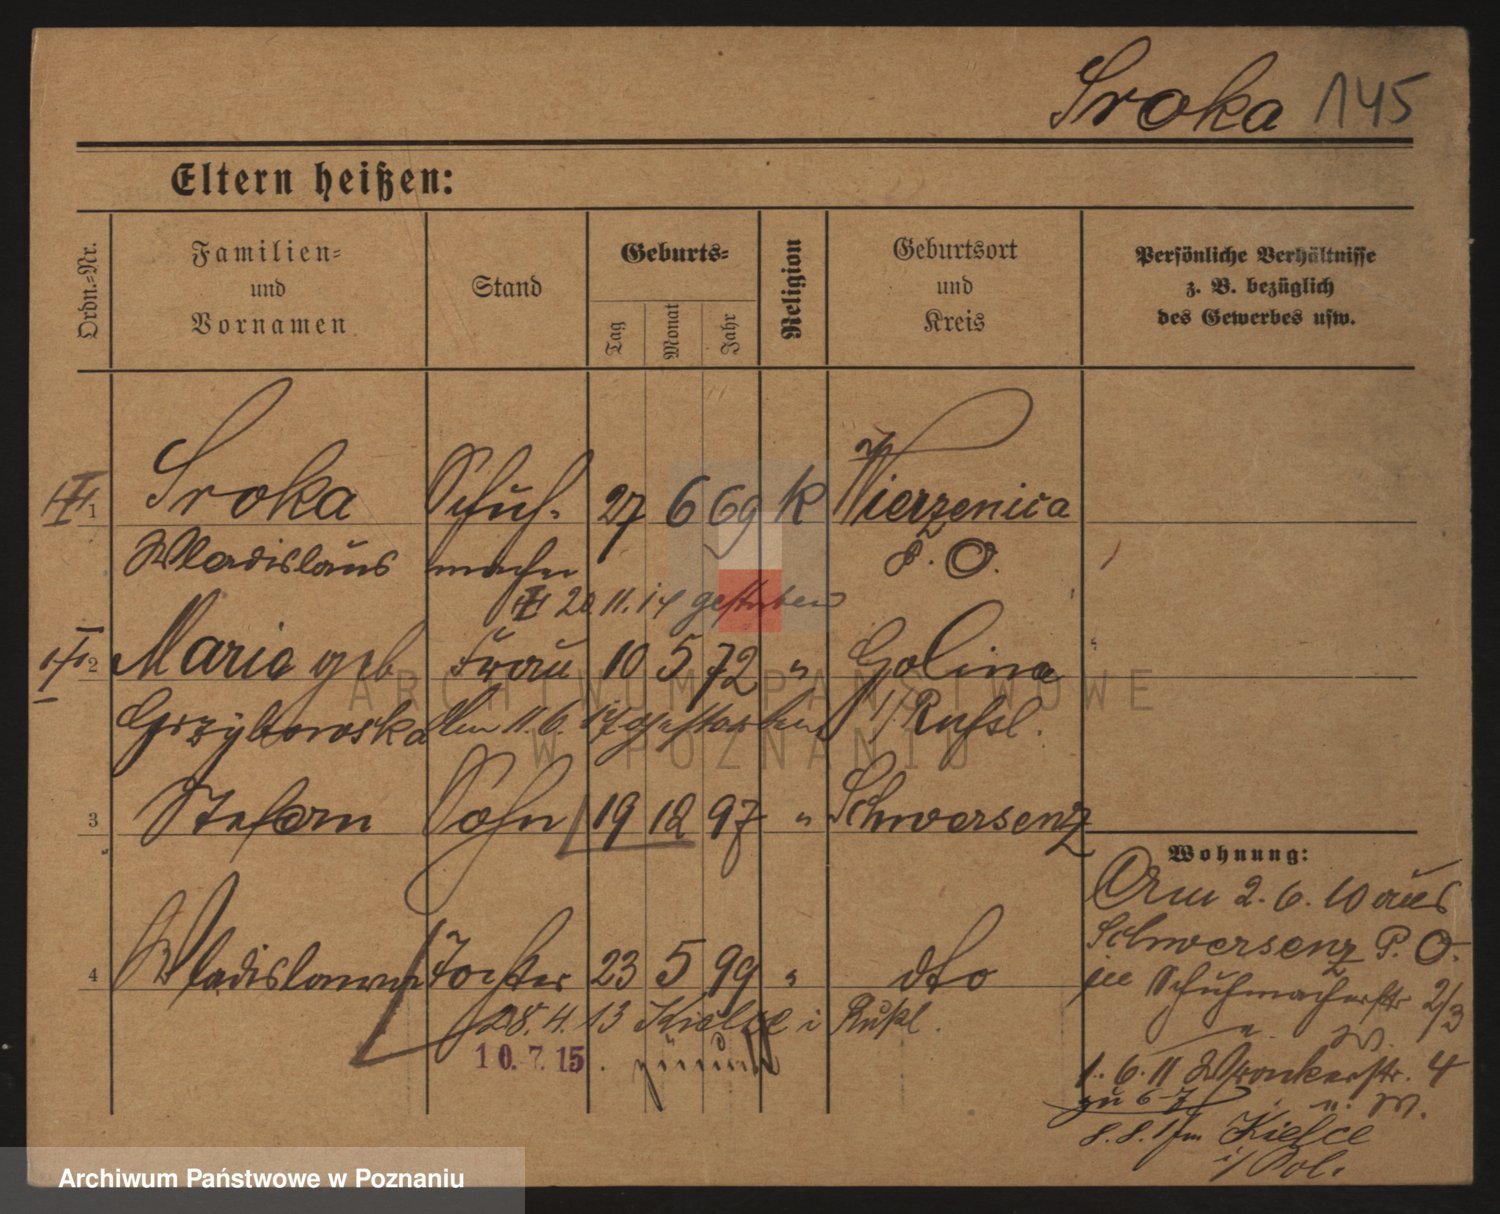 Sroka 145
Eltern heißen:
Ordn.-Nr.
Familien- und Vornamen
Stand
Geburts-
Tag
Monat
Jahr
Religion
Geburtsort und Kreis
Persönliche Verhältnisse z. B. bezüglich des Gewerbes usw.
1 Sroka Schuh- 27 6 69 K Wierzenica
Wladislaus macher P. O.
20 11. 14 gestorben
2 Maria geb Frau 10 5 72 " Golina
Grzybowska 11. 6. gestorben i/ Rußl.
3 Stefan Sohn 19 12 97 " Schwersenz
Wohnung:
Am 2. 6. 10 aus
Schwersenz P. O.
4 Wladislawa Tochter 23 5 99 " dto
Schuhmacherstr 2/3
28. 4. 13 Kielce i Rußl.
10. 7. 15. zurück
1. 6. 11 Wronkerstr. 4
zu 6-7
8. 8. Kielce
i/ Pol.
ARCHIWUM PAŃSTWOWE
W POZNANIU
Archiwum Państwowe w Poznaniu